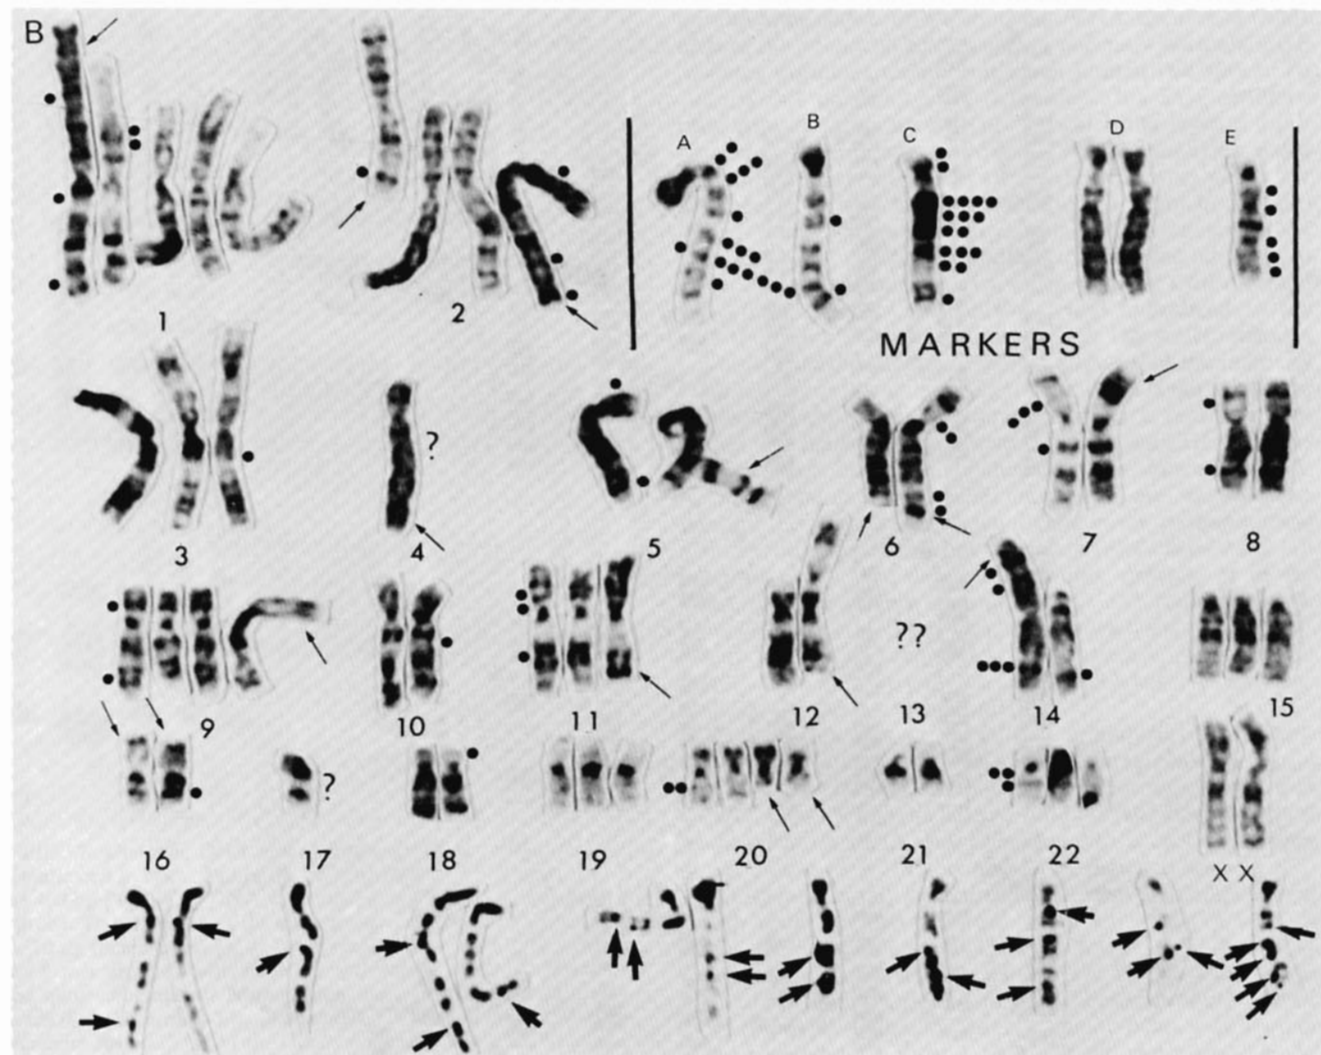 B
A B C D E
1 2
MARKERS
? 
3 4 5 6 7 8
??
9 10 11 12 13 14 15
?
16 17 18 19 20 21 22 X X